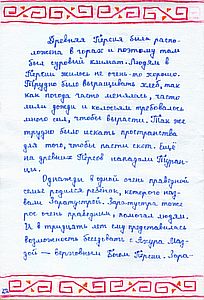 Древняя Персия была распо-
ложена в горах и поэтому там
был суровый климат. Людям в
Персии жилось не очень-то хорошо.
Трудно было выращивать хлеб, так
как погода часто менялась, часто
лили дожди и колосьям требовалось
много сил, чтобы вырасти. Так же
трудно было искать пространства
для того, чтобы пасти скот. Ещё
на древних Персов нападали Туран-
цы.
Однажды в одной очень праведной
семье родился ребёнок, которого наз-
вали Заратустрой. Заратустра тоже
рос очень праведным, помогал людям.
И в тридцать лет ему представилась
возможность беседовать с Ахура Маз-
дой — верховным Богом Персии. Зара-